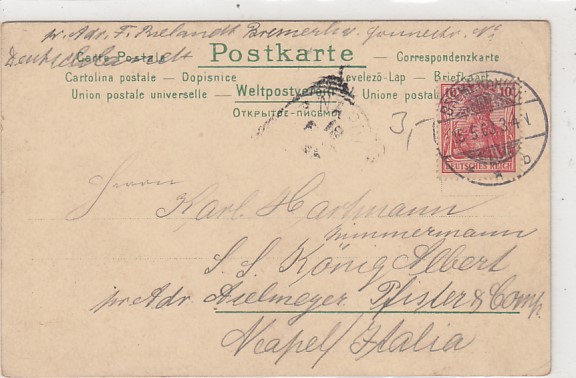 p. Adr. F. Bielandt Bremerhv.
Deutschland
Carte Postale — Postkarte — Correspondenzkarte
Cartolina postale — Dopisnice — Levelező-Lap — Briefkaart
Union postale universelle — Weltpostverein — Unione postale
Открытое письмо
3,-
10 10
DEUTSCHES REICH
Herrn
Karl Hartmann
Zimmermann
S. S. König Albert
pr. Adr. Aselmeyer Pfister & Comp.
Neapel / Italia